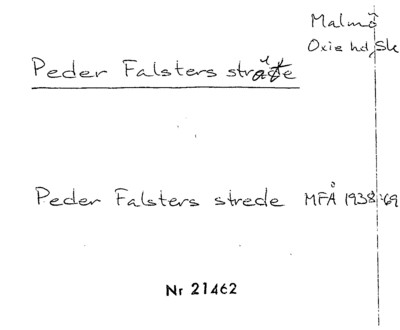 Malmö
Oxie hd, Sk
Peder Falsters sträte
Peder Falsters strede MFÅ 1938:69
Nr 21462